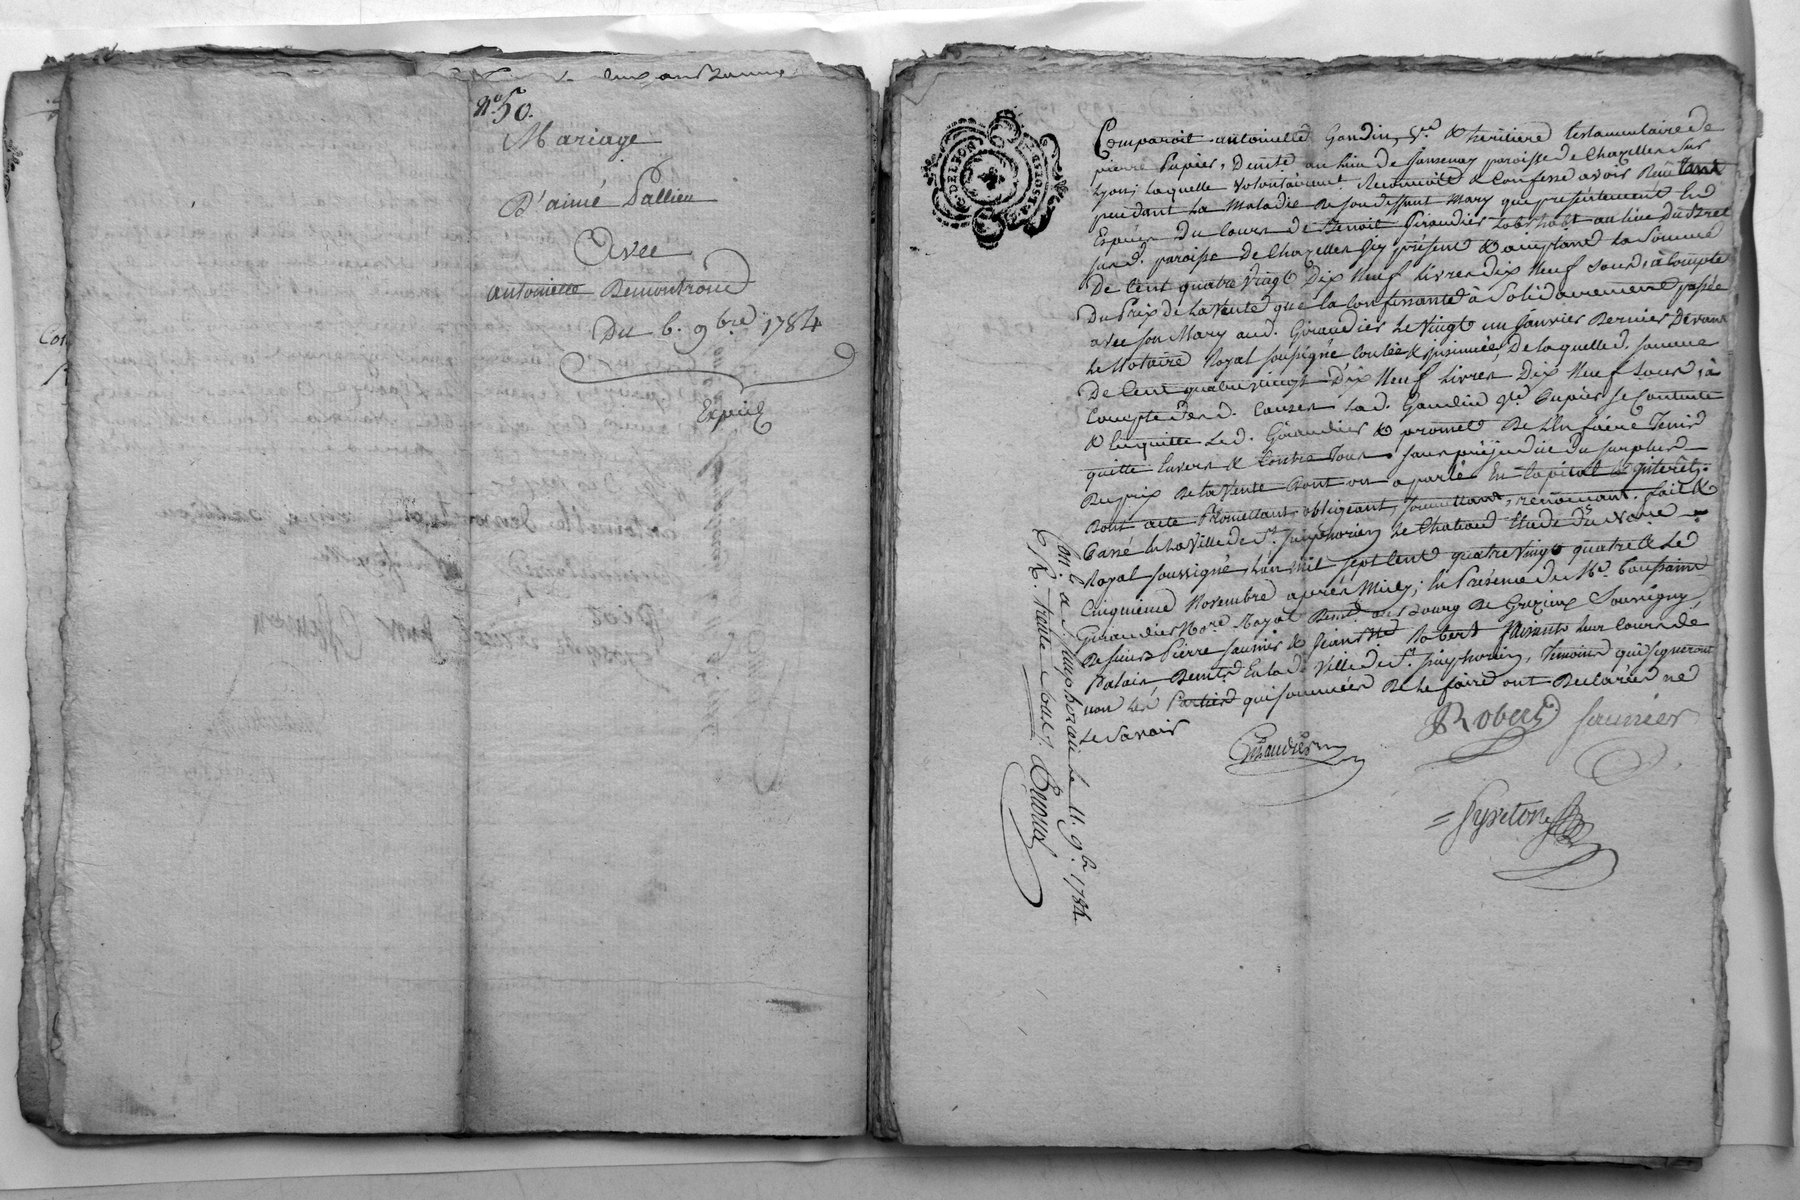 N.° 50.
Mariage
D'aimé Pallieu
Avec
antoinette Demontrond
Du 6. 9.bre 1784
Expié
Comparoit antoinette Gondin, v.e & heritiere testamentaire de
pierre Pupier, Demte au lieu de paroisse de Chazelles sur
Lyon; laquelle volontairemt. Reconnoit & Confesse avoir Reçu tant
pendant la maladie de son deffunt mary que présentement En
Espèces du Cours de Benoit Giraudier labr habt. au lieu du
paroisse de Chazelles Icy présent & acceptant la Somme
De Cent quatre Vingt Dix Neuf livres Dix Neuf Sous, à Compte
Du Prix de la Vente que la Confessante à Solidairement passée
avec son Mary aud. Giraudier le Vingt un Janvier Dernier Devant
le Notaire Royal soussigné Contlée & insinuée, De laquelle d. somme
De Cent quatre vingt Dix Neuf livres Dix Neuf Sous, à
Compte Des d. Causes, lad. Gondin ve Pupier se Contente
& En quitte led. Giraudier & promet De l'En faire Tenir
quitte Envers & Contre Tous, sans préjudice Du surplus
Du prix De la Vente Dont on a parlé En Capital & Interêt;
Dont acte Promettant, obligeant, soumettant, renonçant. fait &
Passé En la Ville de St. Simphorien le Chateau Etude Du Nore
Royal soussigné, l'an mil sept Cent quatre Vingt quatre & le
Cinquieme Novembre après Midy; En Présence de Me. Toussaint
Giraudier Nore. Royal Demt. au Bourg De Grezieux Souvigny,
De sieurs Pierre Saunier & Jean Robert Faisants leur Cours de
Palais Demts En lad. Ville de St. Simphorien, Temoins qui signeront
non les Parties qui sommées De le faire ont Déclarées ne
le Savoir
Robert Saunier
Giraudier
Gyreton
Con.lé a St. Simphorien le 11. 9.b 1784